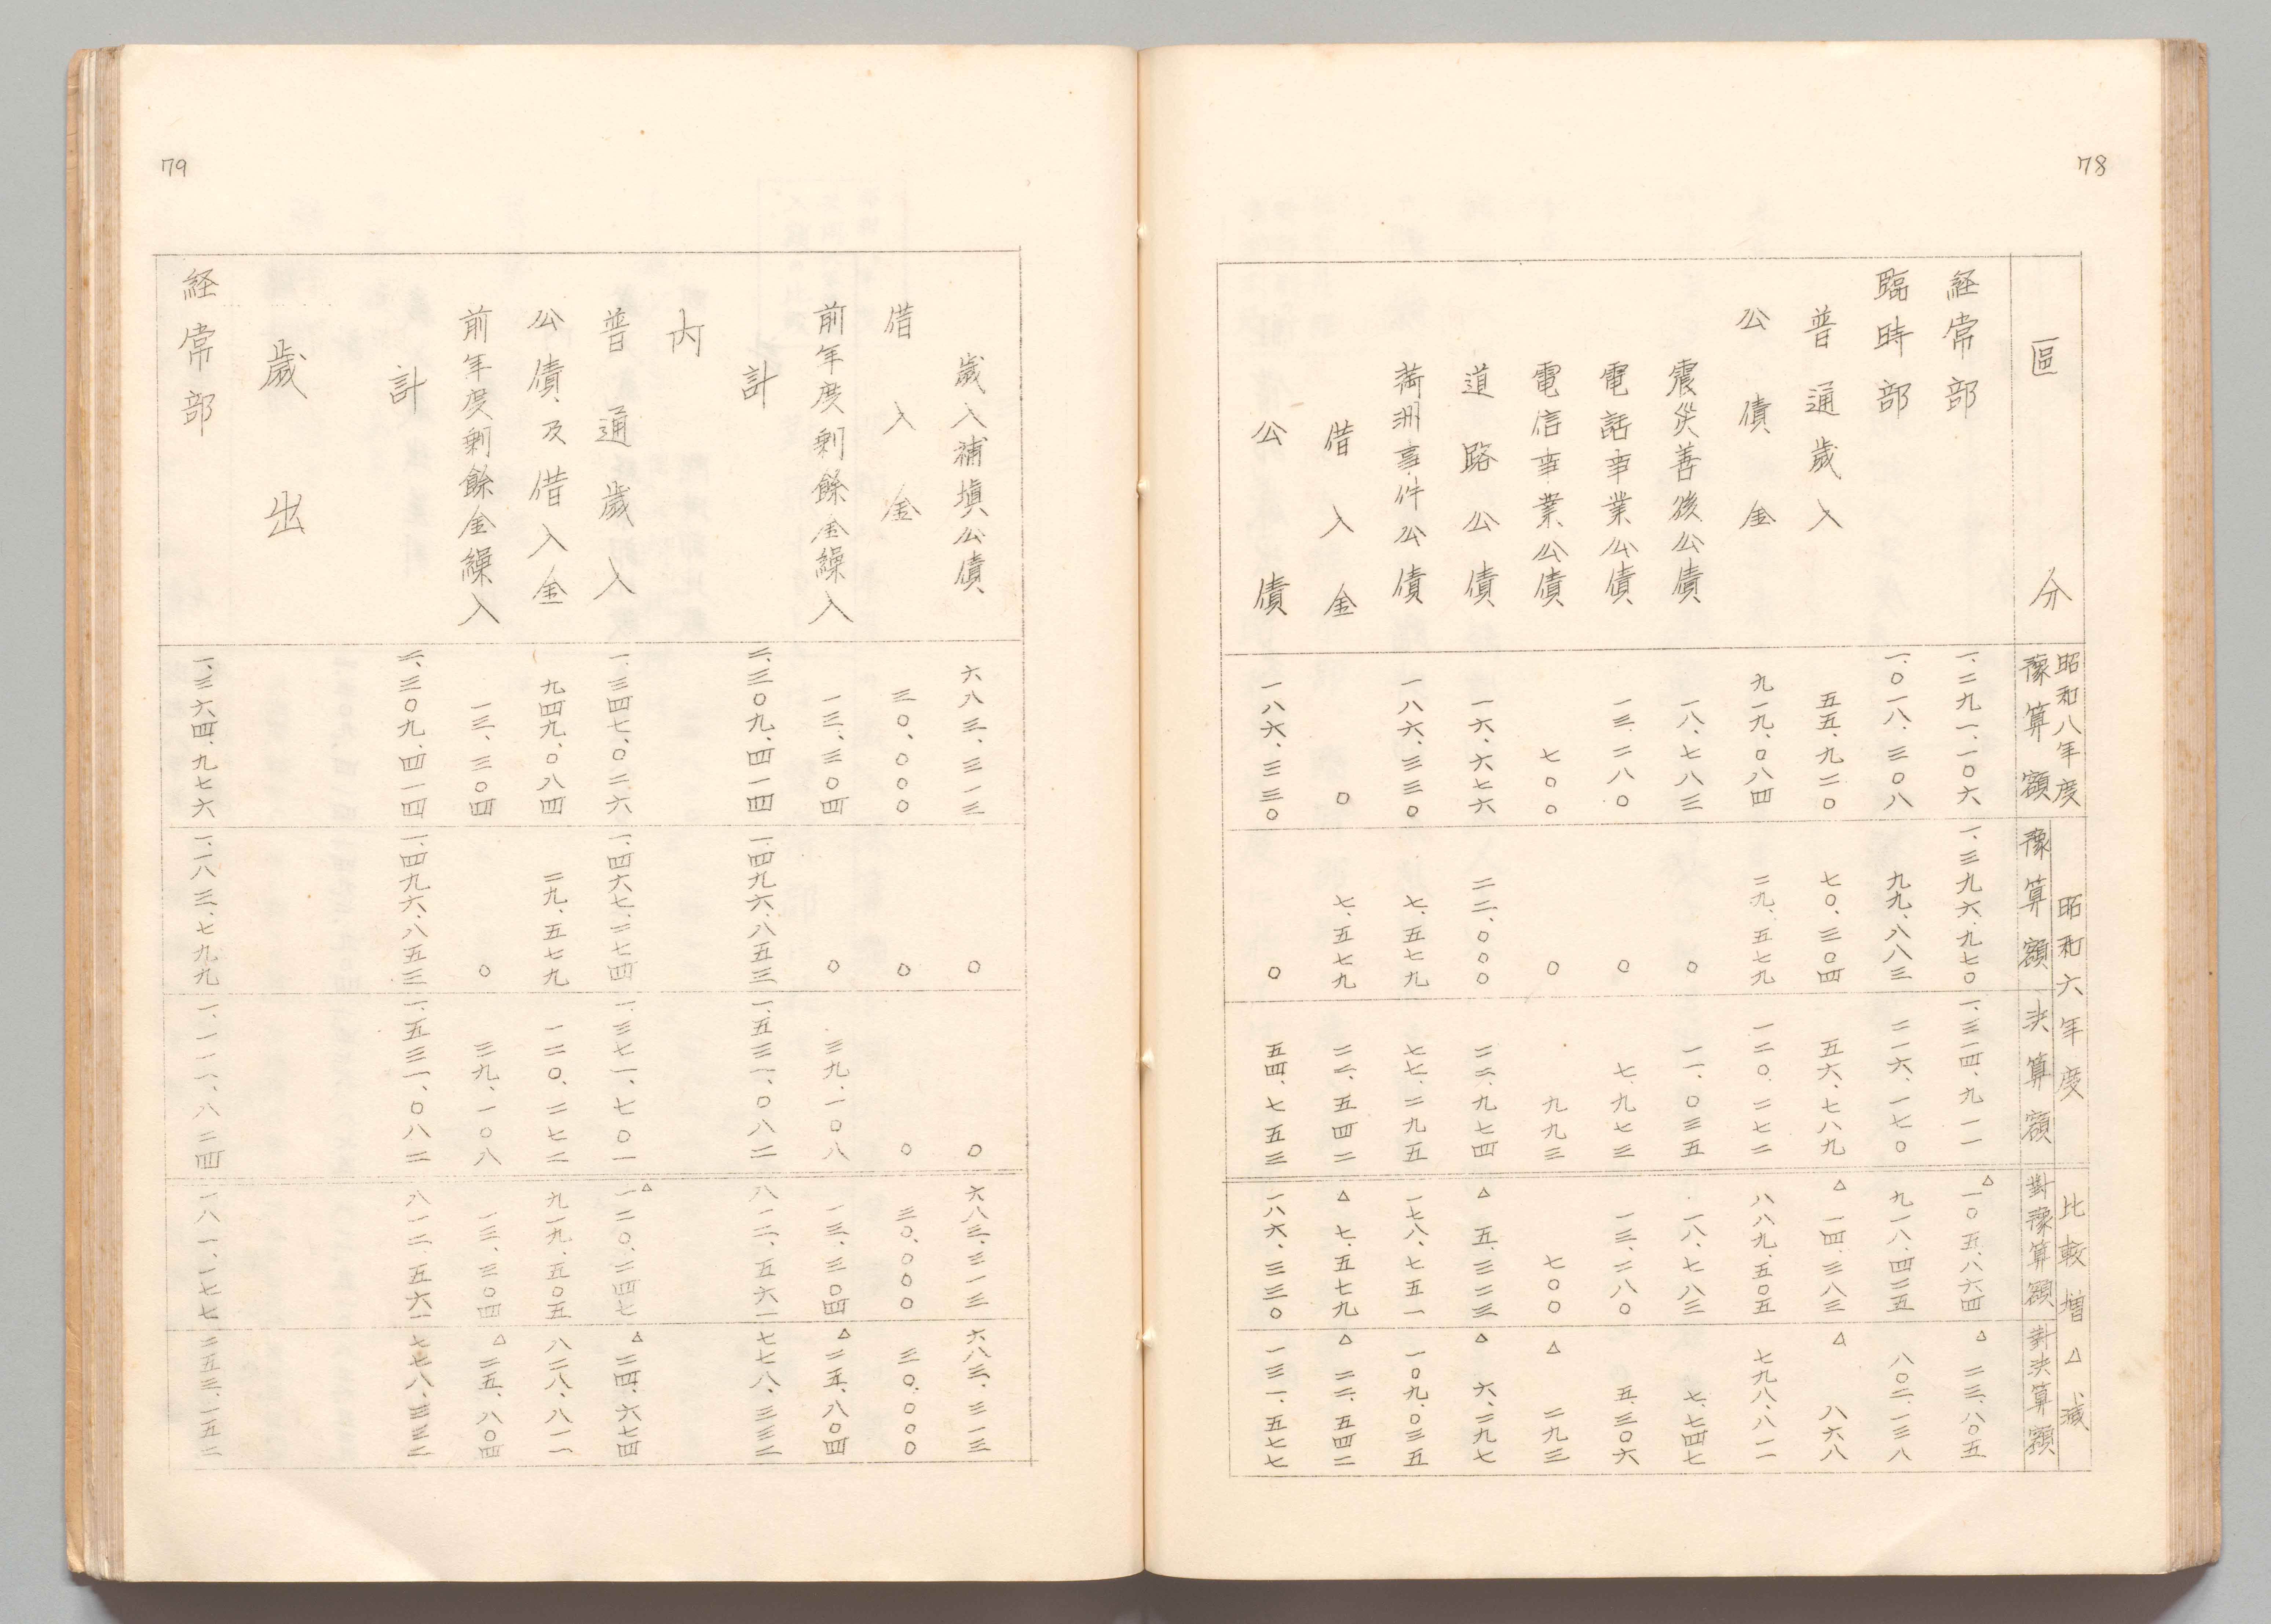 78
區分 昭和八年度 豫算額 昭和六年度 豫算額 決算額 比較増△減 對豫算額 對決算額
経常部 一、二九一、一〇六 一、三九六、九七〇 一、三一四、九一一 △一〇五、八六四 △二三、八〇五
臨時部 一、〇一八、三〇八 九九、八八三 二一六、一七〇 九一八、四二五 八〇二、一三八
普通歳入 五五、九二〇 七〇、三〇四 五六、七八九 △一四、三八三 △八六八
公債金 九一九、〇八四 二九、五七九 一二〇、二七二 八八九、五〇五 七九八、八一一
震災善後公債 一八、七八三 〇 一一、〇三五 一八、七八三 七、七四七
電話事業公債 一三、二八〇 〇 七、九七三 一三、二八〇 五、三〇六
電信事業公債 七〇〇 〇 九九三 七〇〇 △二九三
道路公債 一六、六七六 二二、〇〇〇 二二、九七四 △五、三二三 △六、二九七
満洲事件公債 一八六、三三〇 七、五七九 七七、二九五 一七八、七五一 一〇九、〇三五
借入金 〇 七、五七九 二二、五四二 △七、五七九 △二二、五四二
公債 一八六、三三〇 〇 五四、七五三 一八六、三三〇 一三一、五七七
79
歳入補塡公債 六八三、三一三 〇 〇 六八三、三一三 六八三、三一三
借入金 三〇、〇〇〇 〇 〇 三〇、〇〇〇 三〇、〇〇〇
前年度剰餘金繰入 一三、三〇四 〇 三九、一〇八 一三、三〇四 △二五、八〇四
計 二、三〇九、四一四 一、四九六、八五三 一、五三一、〇八二 八一二、五六一 七七八、三三二
内
普通歳入 一、三四七、〇二六 一、四六七、二七四 一、三七一、七〇一 △一二〇、二四七 △二四、六七四
公債及借入金 九四九、〇八四 二九、五七九 一二〇、二七二 九一九、五〇五 八二八、八一一
前年度剰餘金繰入 一三、三〇四 〇 三九、一〇八 一三、三〇四 △二五、八〇四
計 二、三〇九、四一四 一、四九六、八五三 一、五三一、〇八二 八一二、五六一 七七八、三三二
歳出
経常部 一、三六四、九七六 一、一八三、七九九 一、一一一、八二四 一八一、一七七 二五三、一五二